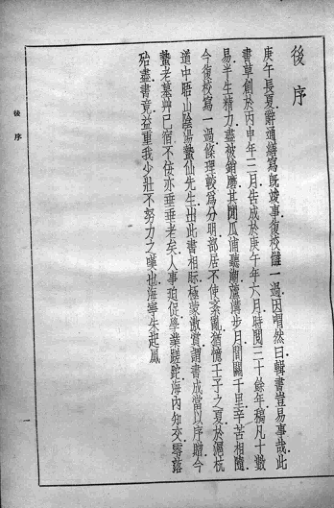 後序
庚午長夏辭通繕寫旣竣事復校讎一過因喟然曰輯書豈易事哉此
書草創於丙申年三月告成於庚午年六月時閱三十餘年稿凡十數
易半生精力盡被銷磨其間瓜浦聽潮蘆溝步月間關千里辛苦相隨
今復校寫一過條理較爲分明部居不使紊亂猶憶壬子之夏於滬杭
道中晤山陰湯蟄仙先生出此書相眎極蒙激賞謂書成當以序贈今
蟄老墓艸已宿不佞亦垂垂老矣人事迫促學業蹉跎海內知交零落
殆盡書竟益重我少壯不努力之嘆也海寧朱起鳳
後序
一